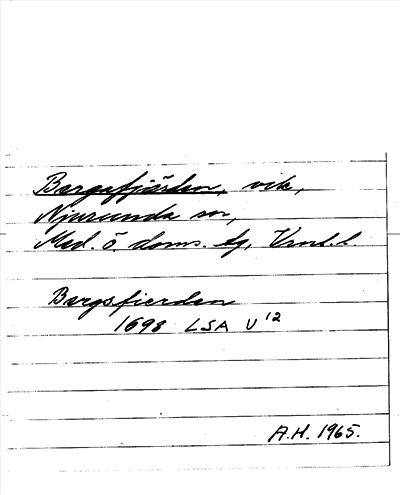 Bergafjärden, vik,
Njurunda sn,
Med. ö. doms. tg, Vnrl. l.
Bergsfierden
1698 LSA U 12
A.H. 1965.